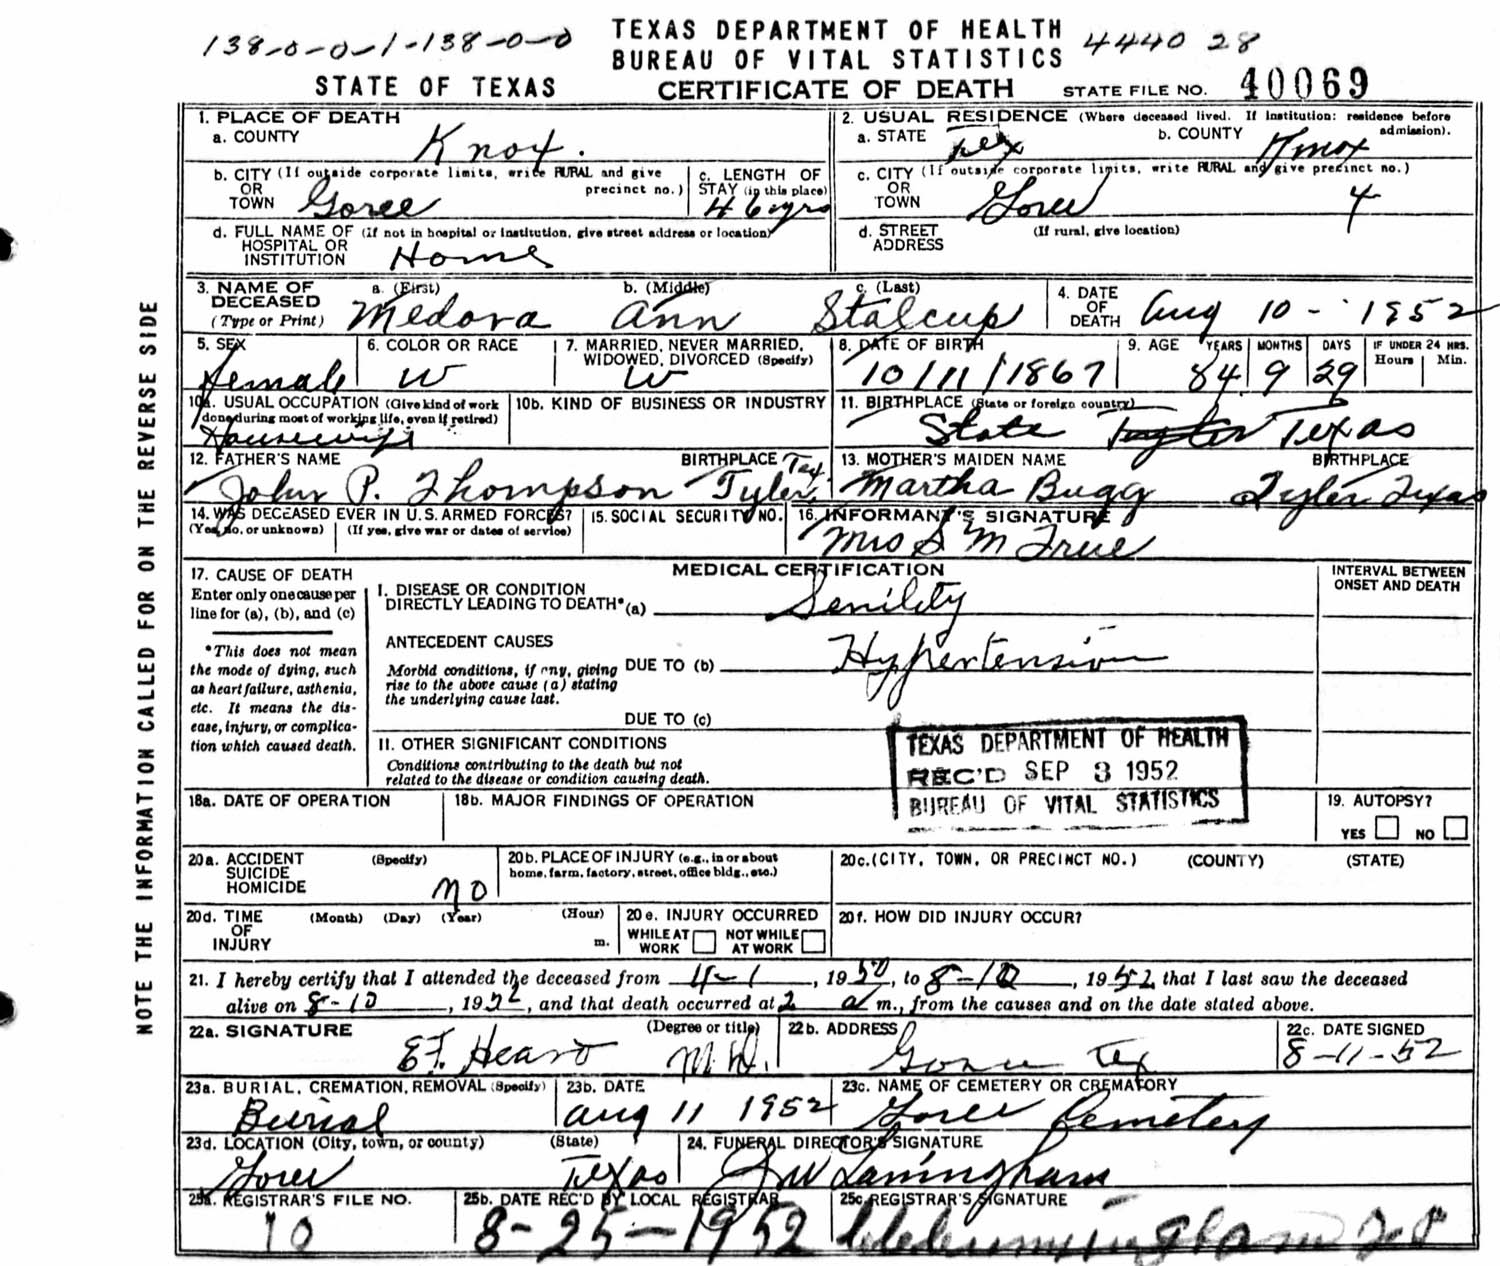 138-0-0-1-138-0-0
TEXAS DEPARTMENT OF HEALTH
BUREAU OF VITAL STATISTICS
4440 28
STATE OF TEXAS
CERTIFICATE OF DEATH
STATE FILE NO. 40069
NOTE THE INFORMATION CALLED FOR ON THE REVERSE SIDE
1. PLACE OF DEATH
a. COUNTY Knox.
2. USUAL RESIDENCE (Where deceased lived. If Institution: residence before admission).
a. STATE Tex b. COUNTY Knox
b. CITY (If outside corporate limits, write RURAL and give precinct no.)
OR
TOWN Goree
c. LENGTH OF
STAY (in this place)
46 yrs
c. CITY (If outside corporate limits, write RURAL and give precinct no.)
OR
TOWN Goree 4
d. FULL NAME OF (If not in hospital or institution, give street address or location)
HOSPITAL OR
INSTITUTION Home
d. STREET (If rural, give location)
ADDRESS
3. NAME OF
DECEASED
(Type or Print)
a. (First) b. (Middle) c. (Last)
Medora Ann Stalcup
4. DATE
OF
DEATH Aug 10-1952
5. SEX
Female
6. COLOR OR RACE
W
7. MARRIED, NEVER MARRIED,
WIDOWED, DIVORCED (Specify)
W
8. DATE OF BIRTH
10/11/1867
9. AGE YEARS MONTHS DAYS IF UNDER 24 HRS.
Hours Min.
84 9 29
10a. USUAL OCCUPATION (Give kind of work
done during most of working life, even if retired)
Housewife
10b. KIND OF BUSINESS OR INDUSTRY
11. BIRTHPLACE (State or foreign country)
State Texas
12. FATHER'S NAME BIRTHPLACE
John P. Thompson Tyler, Tex
13. MOTHER'S MAIDEN NAME BIRTHPLACE
Martha Bugg Tyler Texas
14. WAS DECEASED EVER IN U.S. ARMED FORCES?
(Yes, no, or unknown) (If yes, give war or dates of service)
15. SOCIAL SECURITY NO.
16. INFORMANT'S SIGNATURE
Mrs S M True
17. CAUSE OF DEATH
Enter only one cause per
line for (a), (b), and (c)
*This does not mean
the mode of dying, such
as heart failure, asthenia,
etc. It means the dis-
ease, injury, or complica-
tion which caused death.
MEDICAL CERTIFICATION
INTERVAL BETWEEN
ONSET AND DEATH
I. DISEASE OR CONDITION
DIRECTLY LEADING TO DEATH* (a) Senility
ANTECEDENT CAUSES
Morbid conditions, if any, giving
rise to the above cause (a) stating
the underlying cause last.
DUE TO (b) Hypertension
DUE TO (c)
II. OTHER SIGNIFICANT CONDITIONS
Conditions contributing to the death but not
related to the disease or condition causing death.
TEXAS DEPARTMENT OF HEALTH
REC'D SEP 3 1952
BUREAU OF VITAL STATISTICS
18a. DATE OF OPERATION
18b. MAJOR FINDINGS OF OPERATION
19. AUTOPSY?
YES NO
20a. ACCIDENT (Specify)
SUICIDE
HOMICIDE
no
20b. PLACE OF INJURY (e.g., in or about
home, farm, factory, street, office bldg., etc.)
20c. (CITY, TOWN, OR PRECINCT NO.) (COUNTY) (STATE)
20d. TIME (Month) (Day) (Year) (Hour)
OF
INJURY m.
20e. INJURY OCCURRED
WHILE AT WORK NOT WHILE AT WORK
20f. HOW DID INJURY OCCUR?
21. I hereby certify that I attended the deceased from 4-1, 1950, to 8-10, 1952, that I last saw the deceased
alive on 8-10, 1952, and that death occurred at 2 a m., from the causes and on the date stated above.
22a. SIGNATURE (Degree or title)
M.D.
22b. ADDRESS
Goree Tex
22c. DATE SIGNED
8-11-52
23a. BURIAL, CREMATION, REMOVAL (Specify)
Burial
23b. DATE
Aug 11 1952
23c. NAME OF CEMETERY OR CREMATORY
Goree Cemetery
23d. LOCATION (City, town, or county) (State)
Goree Texas
24. FUNERAL DIRECTOR'S SIGNATURE
25a. REGISTRAR'S FILE NO.
10
25b. DATE REC'D BY LOCAL REGISTRAR
8-25-1952
25c. REGISTRAR'S SIGNATURE